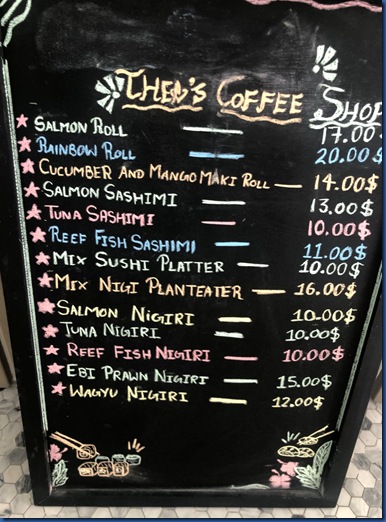 THEO'S COFFEE SHOP
SALMON ROLL — 17.00
RAINBOW ROLL — 20.00$
CUCUMBER AND MANGO MAKI ROLL — 14.00$
SALMON SASHIMI — 13.00$
TUNA SASHIMI — 10.00$
REEF FISH SASHIMI — 11.00$
MIX SUSHI PLATTER — 10.00$
MIX NIGI PLANTEATER — 16.00$
SALMON NIGIRI — 10.00$
TUNA NIGIRI — 10.00$
REEF FISH NIGIRI — 10.00$
EBI PRAWN NIGIRI — 15.00$
WAGYU NIGIRI — 12.00$